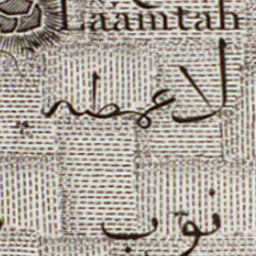 Laâmtah
لاعمطه
نوب